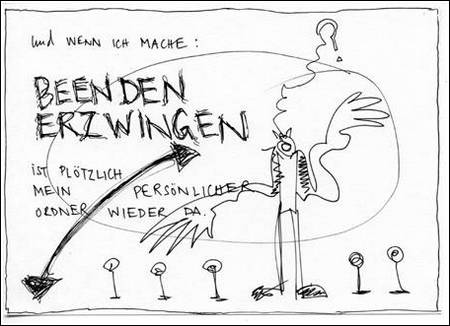 und WENN ICH MACHE:
BEENDEN
ERZWINGEN
IST PLÖTZLICH
MEIN PERSÖNLICHER
ORDNER WIEDER DA.
?